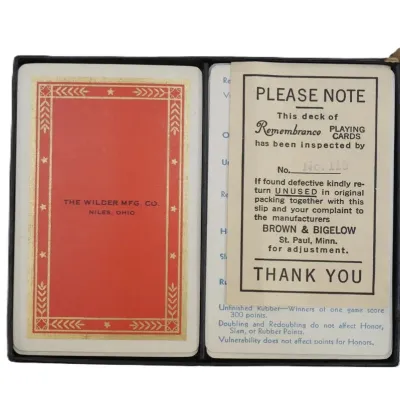 THE WILDER MFG. CO.
NILES, OHIO
PLEASE NOTE
This deck of
Remembrance PLAYING CARDS
has been inspected by
No.
If found defective kindly re-
turn UNUSED in original
packing together with this
slip and your complaint to
the manufacturers
BROWN & BIGELOW
St. Paul, Minn.
for adjustment.
THANK YOU
Unfinished Rubber—Winners of one game score
300 points.
Doubling and Redoubling do not affect Honor,
Slam, or Rubber Points.
Vulnerability does not affect points for Honors.